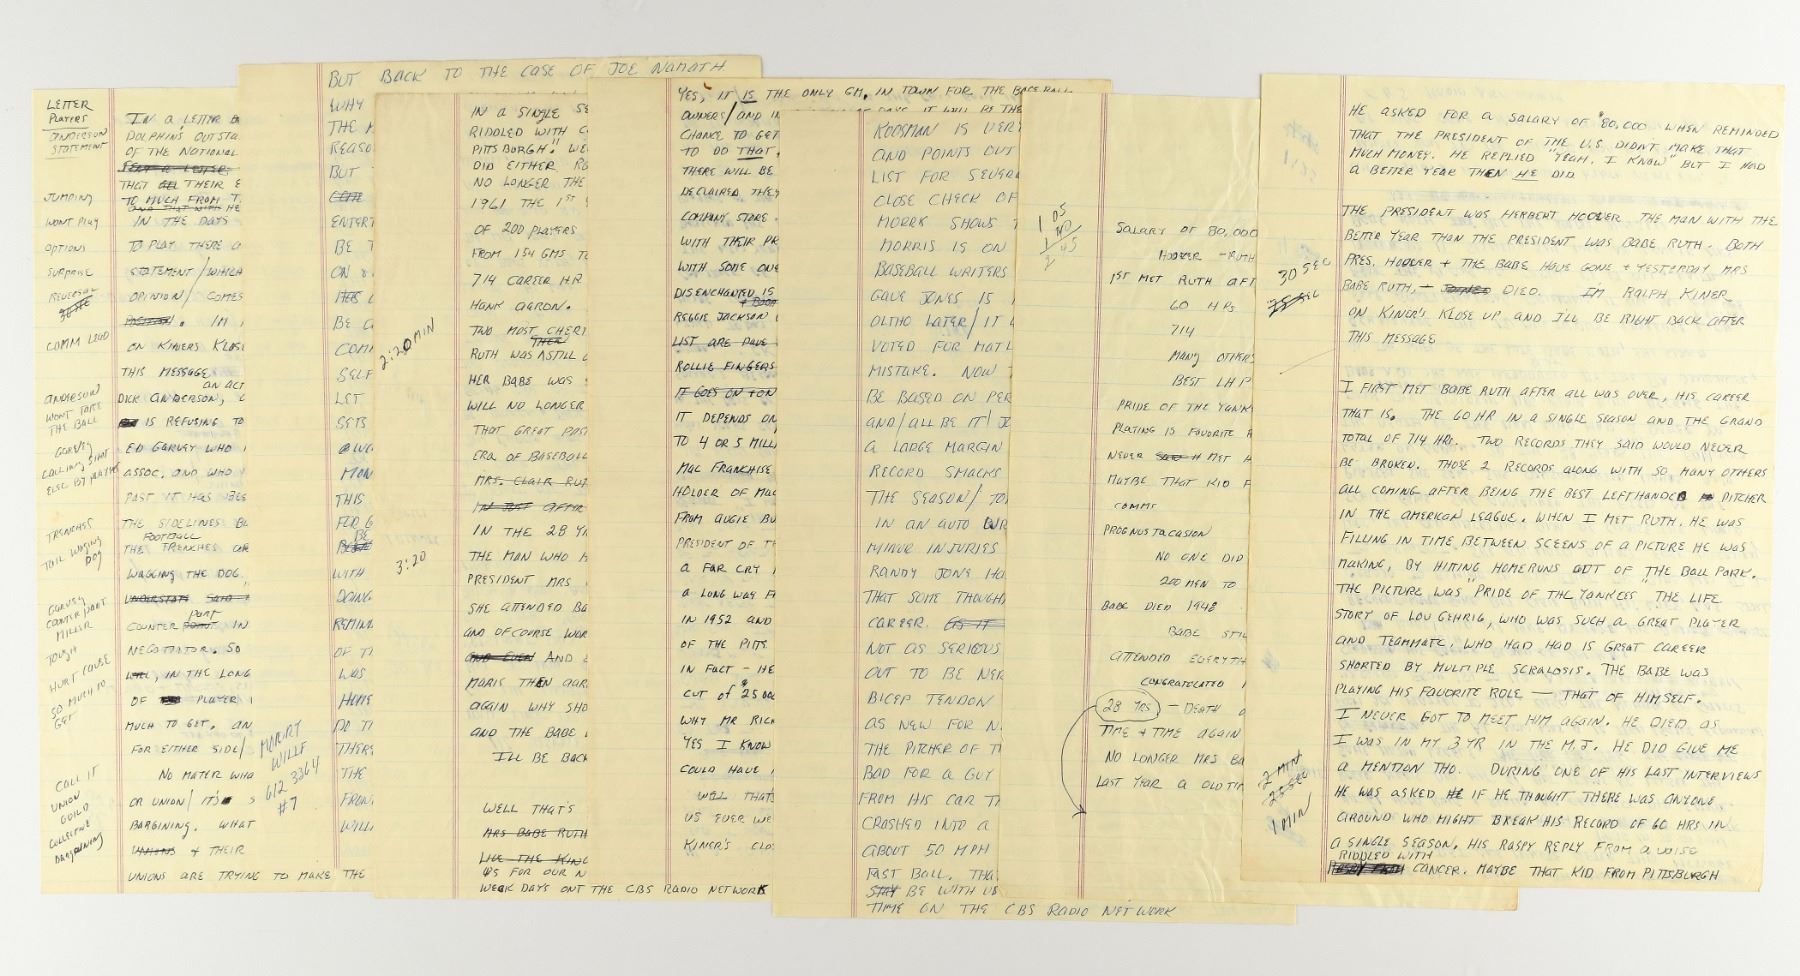 LETTER
PLAYERS
ANDERSON
STATEMENT
JUMPING
WONT PLAY
OPTIONS
SURPRISE
REVERSAL
COMM LEAD
ANDERSON
WONT TAKE
THE BALL
GARVEY
CALLING SHOT
ELSE BY MAYBE
TRENCHES
TAIL WAGING
DOG
GARVEY
COUNTER PART
MILLER
TOUGH
HURT CAUSE
SO MUCH TO
GET
CALL IT
UNION
GUILD
COLLECTIVE
BARGAINING
IN A LETTER
DOLPHIN'S OUTSTA
OF THE NATIONAL
FOR A LETTER
THAT ALL THEIR
TO MUCH FROM T
AND THAT WITH HE
IN THE DAYS
TO PLAY THERE O
STATEMENT/WHICH
OPINION/ COMES
. IM
ON KINERS KLOS
THIS MESSAGE
AN ACT
DICK ANDERSON,
IS REFUSING TO
ED GARVEY WHO
ASSOC. AND WHO
PAST IT HAS BEE
THE SIDELINES BU
FOOTBALL
THE TRENCHES AR
WAGGING THE DOG
UNDERSTATE SAID
PART
COUNTER POINT IN
NEGOTIATOR. SO
WELL, IN THE LONG
OF PLAYER
MUCH TO GET, AN
FOR EITHER SIDE/
NO MATER WHA
OR UNION/ IT'S S
BARGINING. WHAT
UNIONS & THEIR
UNIONS ARE TRYING TO MAKE THE
WILLF
612 3364
#7
BUT BACK TO THE CASE OF JOE NAMATH
WHY
THE
REASO
BUT
ENTERT
BE T
ON
HIS
BE
COM
SELF
LET
SETS
MON
THIS
FOR
BE
WITH
DOING
REMIN
OF T
WAS
HOME
DO TI
THERE
THE
FRON
WILL
2:20 MIN
3:20
IN A SINGLE SE
RIDDLED WITH C
PITTSBURGH". WE
DID EITHER RO
NO LONGER THE
1961 THE 1ST
OF 200 PLAYERS
FROM 154 GMS TO
714 CAREER H.R.
HANK AARON.
TWO MOST CHERI
THEN
RUTH WAS STILL
HER BABE WAS
WILL NO LONGER
THAT GREAT PAS
ERA OF BASEBALL
MRS. CLAIR RUT
IN JUST AFTER
IN THE 28 YR
THE MAN WHO H
PRESIDENT MRS
SHE ATTENDED BA
AND OF COURSE WOR
AND EVEN AND
MARIS THEN AAR
AGAIN WHY SHO
AND THE BABE
I'LL BE BACK
WELL THAT'S
MRS BABE RUTH
LIKE THE KING
US FOR OUR N
WEEK DAYS ONT THE CBS RADIO NETWORK
YES, IT IS THE ONLY GM. IN TOWN FOR THE BASEBALL
OWNERS/ AND IN
CHANCE TO GET
TO DO THAT.
THERE WILL BE
DECLAIRED THEY
COMPANY STORE.
WITH THEIR PR
WITH SOME ONE
DISENCHANTED IS
REGGIE JACKSON
LIST ARE DAVE
ROLLIE FINGERS
IT GOES ON & ON
IT DEPENDS ON
TO 4 OR 5 MILLI
MAC FRANCHISE
HOLDER OF MAC
FROM AUGIE BU
PRESIDENT OF TH
A FAR CRY
A LONG WAY F
IN 1952 AND
OF THE PITTS
IN FACT - HE
CUT OF $25 000
WHY MR RICK
YES I KNOW
COULD HAVE
WELL THATS
US EVER WE
KINER'S CLO
DAYS IT WILL BE THE
KOOSMAN IS VERY
AND POINTS OUT
LIST FOR SEVERA
CLOSE CHECK OF
MORRIS IS ON
BASEBALL WRITERS
GAVE JONES IS
OLTHO LATER/ IT
VOTED FOR MATL
MISTAKE. NOW
BE BASED ON PER
AND/ ALL BE IT/ J
A LARGE MARGIN
RECORD SMACKS
THE SEASON/ JO
IN AN AUTO WR
MINOR INJURIES
RANDY JONE HA
THAT SOME THOUGH
CAREER. AS IT
NOT AS SERIOUS
OUT TO BE NER
BICEP TENDON
AS NEW FOR N
THE PITCHER OF T
BAD FOR A GUY
FROM HIS CAR TI
CRASHED INTO A
ABOUT 50 MPH
FAST BALL. THA
STAY BE WITH US
TIME ON THE CBS RADIO NETWORK
1 05
2 45
SALARY OF 80,000
HOOVER - RUTH
1ST MET RUTH AFT
60 HRS
714
MANY OTHERS
BEST LH P
PRIDE OF THE YANK
PLAYING IS FAVORITE R
NEVER SAW H MET H
MAYBE THAT KID F
COMMS
PROGNOSTACASION
NO ONE DID
200 MEN TO
BABE DIED 1948
BABE STIL
ATTENDED EVERYTH
CONGRATULATED
28 YRS - DEATH O
TIME & TIME AGAIN
NO LONGER MRS BA
LAST YEAR A OLD TIM
30 SEC
35 SEC
2 MIN
25 SEC
1 MIN
HE ASKED FOR A SALARY OF $80,000 WHEN REMINDED
THAT THE PRESIDENT OF THE U.S DIDN'T MAKE THAT
MUCH MONEY. HE REPLIED "YEAH, I KNOW" BUT I HAD
A BETTER YEAR THEN HE DID.
THE PRESIDENT WAS HERBERT HOOVER THE MAN WITH THE
BETTER YEAR THAN THE PRESIDENT WAS BABE RUTH. BOTH
PRES. HOOVER & THE BABE HAVE GONE & YESTERDAY MRS
BABE RUTH, DIED. IM RALPH KINER
ON KINER'S KLOSE UP AND I'LL BE RIGHT BACK AFTER
THIS MESSAGE
I FIRST MET BABE RUTH AFTER ALL WAS OVER, HIS CAREER
THAT IS. THE 60 HR IN A SINGLE SEASON AND THE GRAND
TOTAL OF 714 HRS. TWO RECORDS THEY SAID WOULD NEVER
BE BROKEN. THOSE 2 RECORDS ALONG WITH SO MANY OTHERS
ALL COMING AFTER BEING THE BEST LEFTHANDED PITCHER
IN THE AMERICAN LEAGUE. WHEN I MET RUTH. HE WAS
FILLING IN TIME BETWEEN SCEENS OF A PICTURE HE WAS
MAKING, BY HITTING HOMERUNS OUT OF THE BALL PARK.
THE PICTURE WAS "PRIDE OF THE YANKEES" THE LIFE
STORY OF LOU GEHRIG, WHO WAS SUCH A GREAT PLAYER
AND TEAMMATE, WHO HAD HAD IS GREAT CAREER
SHORTED BY MULTIPLE SCRALOSIS. THE BABE WAS
PLAYING HIS FAVORITE ROLE — THAT OF HIMSELF.
I NEVER GOT TO MEET HIM AGAIN. HE DIED AS
I WAS IN MY 3 YR IN THE M.J. HE DID GIVE ME
A MENTION THO. DURING ONE OF HIS LAST INTERVIEWS
HE WAS ASKED HE IF HE THOUGHT THERE WAS ANYONE
AROUND WHO MIGHT BREAK HIS RECORD OF 60 HRS IN
A SINGLE SEASON. HIS RASPY REPLY FROM A VOISE
RIDDLED WITH
CANCER. MAYBE THAT KID FROM PITTSBURGH